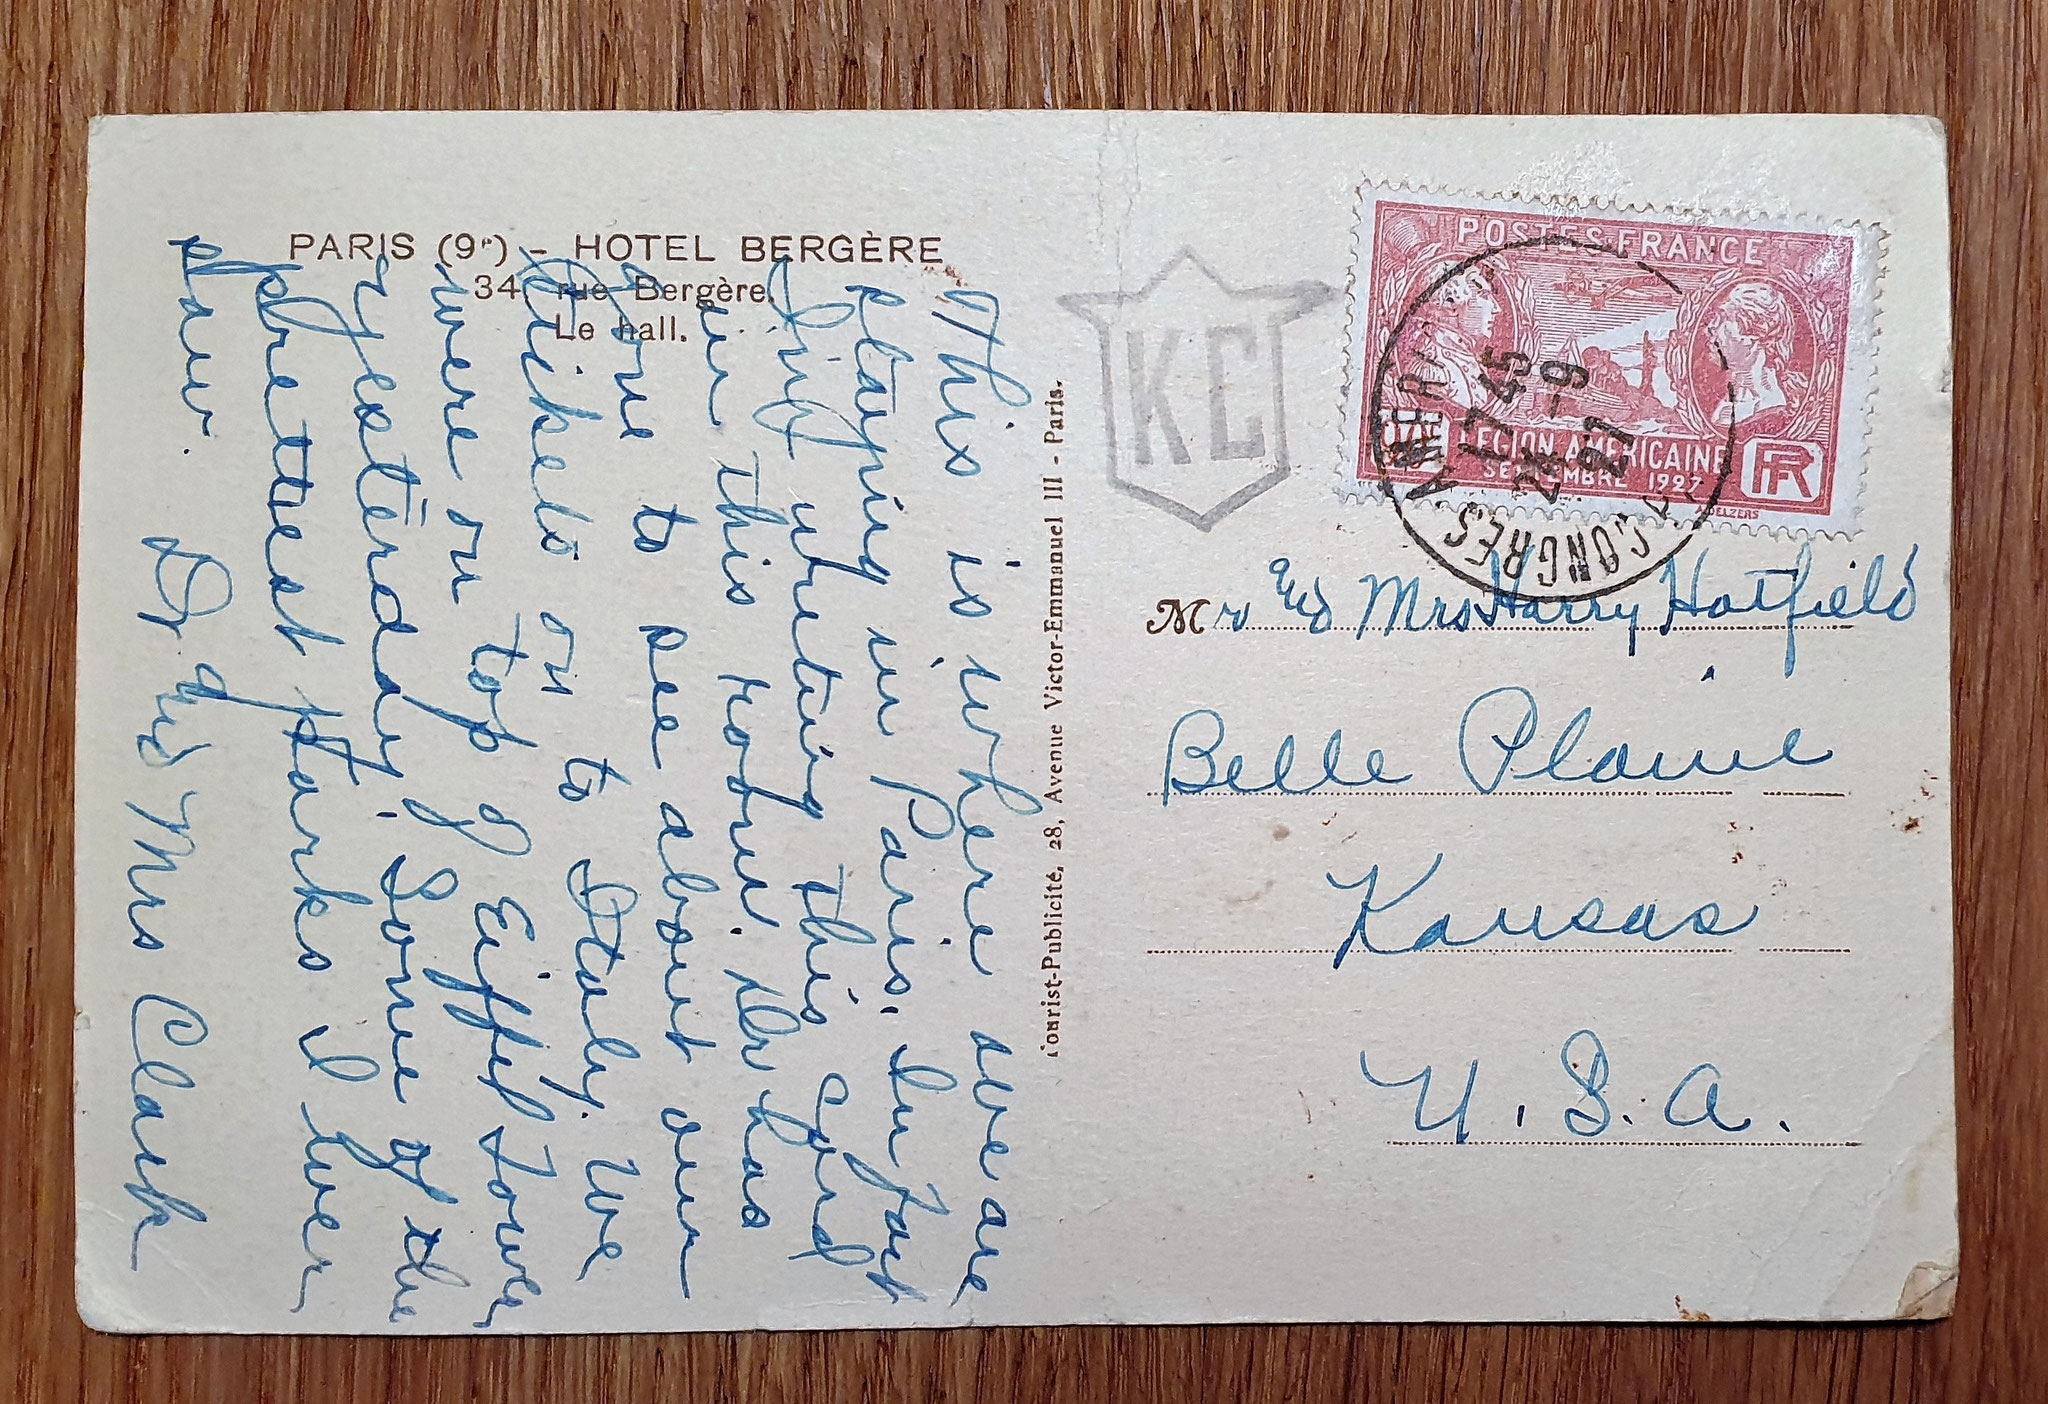 PARIS (9e) - HOTEL BERGÈRE
34, rue Bergère.
Le hall.
This is where we are
staying in Paris. In fact
I'm writing this card
in this room. Dr has
gone to see about our
tickets on to Italy. We
were on top of Eiffel Tower
yesterday. Some of the
prettiest parks I ever
saw.
Dr and Mrs Clark
Tourist-Publicité, 28, Avenue Victor-Emmanuel III - Paris.
KC
POSTES FRANCE
LEGION AMERICAINE
SEPTEMBRE 1927
RF
CONGRES AMER
17 45
-9
27
Mr and Mrs Harry Hatfield
Belle Plaine
Kansas
U.S.A.